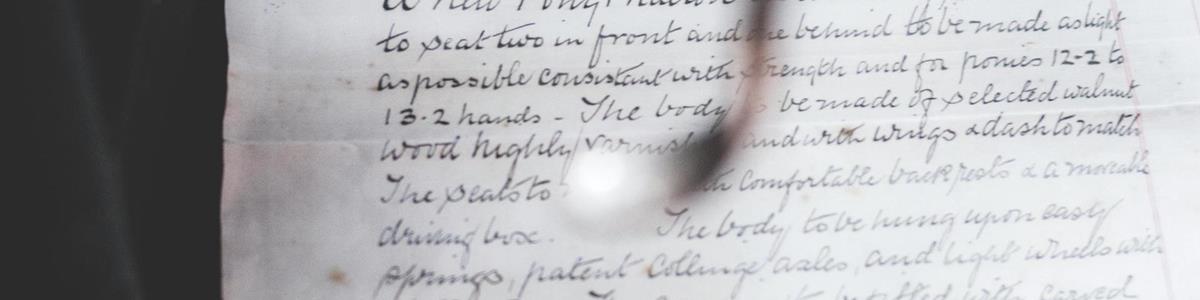 A New Pony
to seat two in front and one behind to be made as light
as possible consistant with strength and for ponies 12-2 to
13-2 hands - The body be made of selected walnut
wood highly varnish and with wings & dash to match
The seats to comfortable back rests & a moveable
driving box. The body to be hung upon easy
springs, patent Collinge axles, and light wheels with
The be fitted with carved